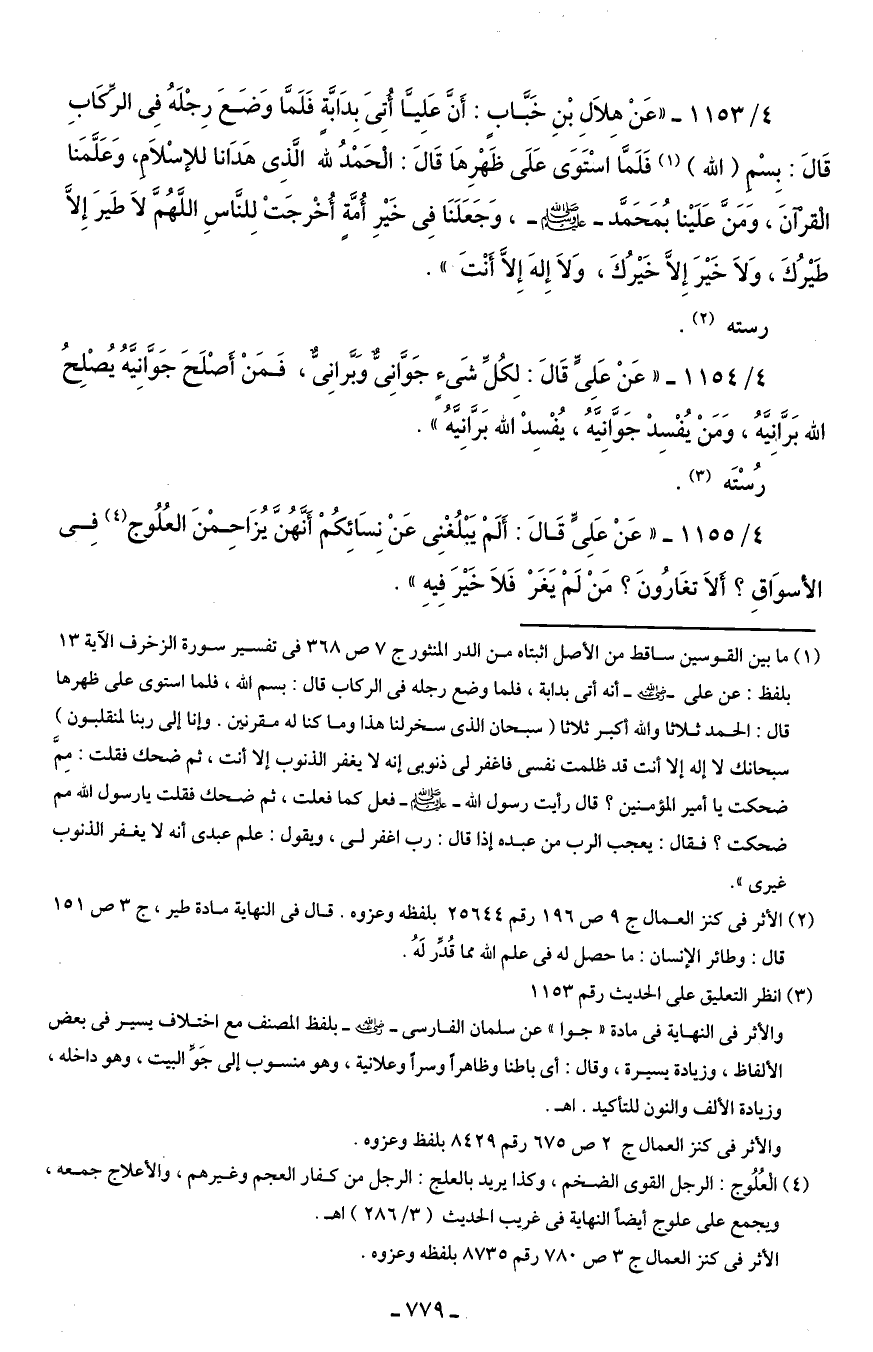 ٤/ ١١٥٣ ـ «عَنْ هِلاَلِ بْنِ خَبَّابٍ : أَنَّ عَلِيَّا أُتِىَ بِدَابَّةٍ فَلَمَّا وَضَعَ رِجْلَهُ فِى الرِّكَابِ
قَالَ : بِسْمِ ( الله ) (١) فَلَمَّا اسْتَوَى عَلَى ظَهْرِهَا قَالَ : الْحَمْدُ لله الَّذِى هَدَانا للإسْلاَمِ، وَعَلَّمَنا
الْقرآنَ ، وَمَنَّ عَلَيْنا بُمَحَمَّد ـ ﷺ ـ ، وَجَعَلَنَا فِى خَيْرِ أُمَّةٍ أُخْرجَتْ للنَّاسِ اللَّهُمَّ لاَ طَيرَ إلاَّ
طَيْرُكَ ، وَلاَ خَيْرَ إلاَّ خَيْرُكَ ، وَلاَ إلهَ إلاَّ أَنْتَ » .
رسته (٢) .
٤/ ١١٥٤ ـ « عَنْ عَلِىٍّ قَالَ : لِكُلِّ شَىءٍ جَوَّانِىٌّ وَبَّرانِىٌّ ، فَـمَنْ أَصْلَحَ جَوَّانِيَّهُ يُصْلِحُ
الله بَرَّانِيَّهُ ، وَمَنْ يُفْسِدْ جَوَّانِيَّهُ ، يُفْسِدْ الله بَرَّانِيَّهُ » .
رُسْتَه (٣) .
٤/ ١١٥٥ ـ « عَنْ عَلِىٍّ قَـالَ : أَلَمْ يَبْلُغْنِى عَنْ نِسَائِكُمْ أَنَّهُنَّ يُزَاحِـمْنَ العُلُوج(٤) فِـى
الأسوَاقِ ؟ أَلاَ تغَارُونَ ؟ مَنْ لَمْ يَغَرْ فَلاَ خَيْرَ فِيهِ » .
(١) ما بين القـوسين سـاقط من الأصل اثبتاه مـن الدر المنثور ج ٧ ص ٣٦٨ فى تفسير سورة الزخرف الآية ١٣
بلفظ : عن على ـ رضي الله عنه ـ أنه أتى بدابة ، فلما وضع رجله فى الركاب قال : بسم الله ، فلما استوى على ظهرها
قال : الحـمد ثـلاثا والله أكبـر ثلاثا ( سبحان الذى سـخرلنا هذا ومـا كنا له مـقرنين . وإنا إلى ربنا لمنقلبـون )
سبحانك لا إله إلا أنت قد ظلمت نفسى فاغفر لى ذنوبى إنه لا يغفر الذنوب إلا أنت ، ثم ضحك فقلت : مِمَّ
ضحكت يا أمير المؤمـنين ؟ قال رأيت رسول الله ـ ﷺ ـ فعل كما فعلت ، ثم ضـحك فقلت يارسول الله مم
ضحكت ؟ فـقال : يعجب الرب من عبده إذا قال : رب اغفر لـى ، ويقول : علم عبدى أنه لا يغـفر الذنوب
غيرى ».
(٢) الأثر فى كنز العـمال ج ٩ ص ١٩٦ رقم ٢٥٦٤٤ بلفظه وعزوه . قـال فى النهاية مـادة طير ، ج ٣ ص ١٥١
قال : وطائر الإنسان : ما حصل له فى علم الله مما قُدِّر لَهُ .
(٣) انظر التعليق على الحديث رقم ١١٥٣
والأثر فى النهـاية فى مادة « جـوا » عن سلمان الفـارسى ـ رضي الله عنه ـ بلفظ المصنف مع اختـلاف يسيـر فى بعض
الألفاظ ، وزيادة يسيـرة ، وقال : أى باطنا وظاهراً وسراً وعلانية ، وهو منسـوب إلى جَوِّ البيت ، وهو داخله ،
وزيادة الألف والنون للتأكيد . اهـ .
والأثر فى كنز العمال ج ٢ ص ٦٧٥ رقم ٨٤٢٩ بلفظ وعزوه .
(٤) الْعُلُوج : الرجل القوى الضـخم ، وكذا يريد بالعلج : الرجل من كـفار العجم وغـيرهم ، والأعلاج جمـعه ،
ويجمع على علوج أيضاً النهاية فى غريب الحديث ( ٣/ ٢٨٦ ) اهـ .
الأثر فى كنز العمال ج ٣ ص ٧٨٠ رقم ٨٧٣٥ بلفظه وعزوه .
ـ ٧٧٩ ـ